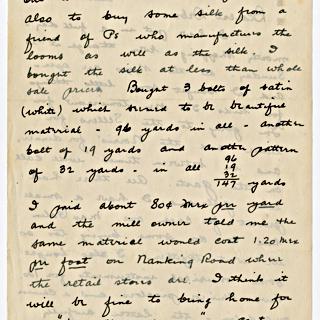 also to buy some silk from a
friend of Ps who manufactures the
looms as will as the silk. I
bought the silk at less than whole
sale prices. Bought 3 bolts of satin
(white) which seemed to be beautiful
material - 96 yards in all - another
bolt of 19 yards and another pattern
of 32 yards - in all
96
19
32
147 yards
I paid about 80¢ mex per yard
and the mill owner told me the
same material would cost 1.20 mex
per foot on Nanking Road where
the retail stores are. I think it
will be fine to bring home for